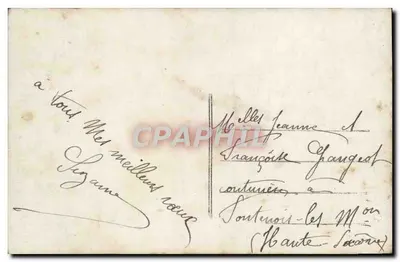 à Vous Mes meilleurs vœux
Suzanne
Melles Jeanne et
Françoise Grangeot
couturières à
Fontenois-les Mon
(Haute-Saône)
CPAPHIL